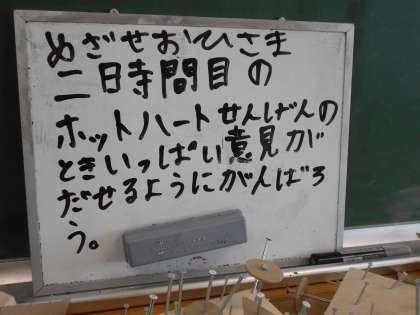 めざせおひさま
二日時間目の
ホットハートせんげんの
ときいっぱい意見が
だせるようにがんばろ
う。